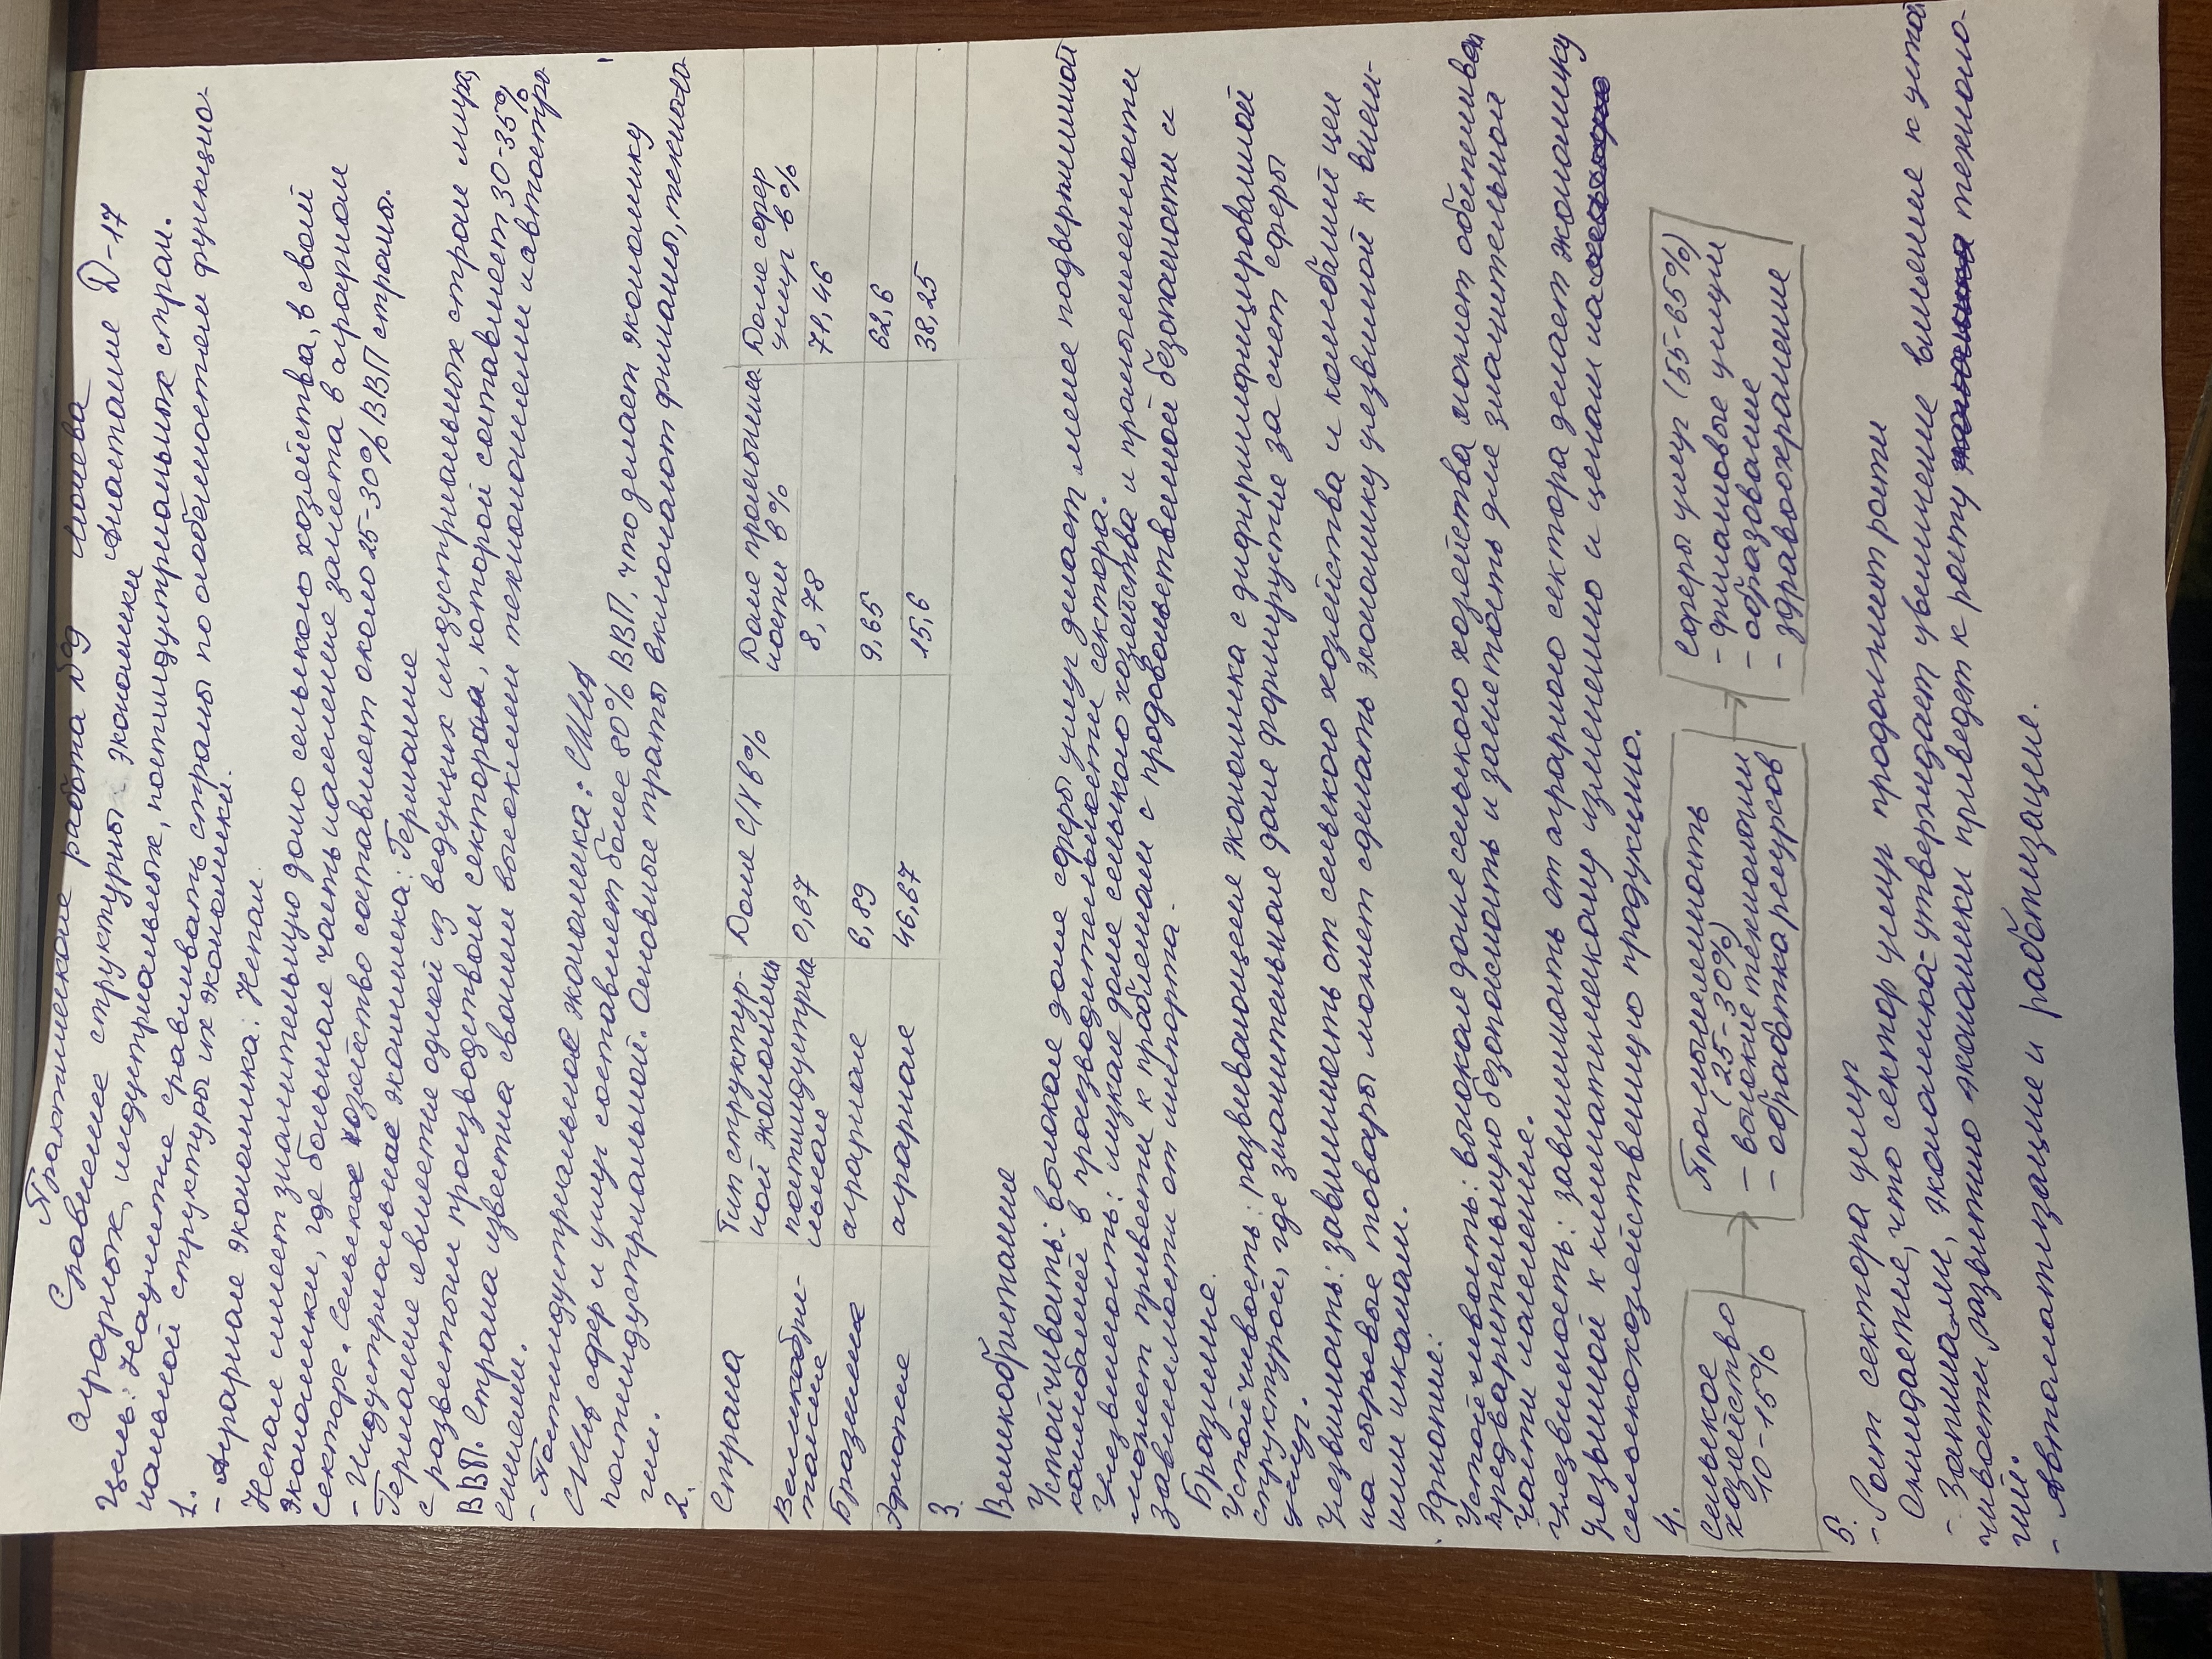 Практическая работа №9 Лонева
Сравнение структуры экономики Анастасия Д-17
аграрных, индустриальных, постиндустриальных стран.
Цель: Научиться сравнивать страны по особенностям функцио-
нальной структуры их экономики.
1.
- Аграрная экономика: Непал.
Непал имеет значительную долю сельского хозяйства, в своей
экономики, где большая часть населения занята в аграрном
секторе. Сельское хозяйство составляет около 25-30% ВВП страны.
- Индустриальная экономика: Германия
Германия является одной из ведущих индустриальных стран мира,
с развитым производством сектора, которой составляет 30-35%
ВВП. Страна известна своими высокими технологиями и автостро
ением.
- Постиндустриальная экономика: США
США сфера и услуг составляет более 80% ВВП, что делает экономику
постиндустриальной. Основные траты включают финансы, техноло-
гии.
2.
Страна Тип структур- Доля С/Х в% Доля промышлен Доля сфер
ной экономики ности в% услуг в%
Великобри- постиндустриа 0,67 8,78 71,46
тания льная
Бразилия аграрная 6,89 9,65 62,6
Эфиопия аграрная 46,67 15,6 38,25
3.
Великобритания
Устойчивость: высокая доля сферы услуг делает менее подверженной
колебаний в производительности сектора.
Уязвимость: низкая доля сельского хозяйства и промышленности
может привести к проблемам с продовольственной безопасности и
зависимости от импорта.
Бразилия.
Устойчивость: развивающееся экономика с диверсифицированной
структурой, где значительная доля формируется за счет сферы
услуг.
Уязвимость: зависимость от сельского хозяйства и колебаний цен
на сырьевые товары может сделать экономику уязвимой к внеш-
ним шокам.
Эфиопия:
Устойчивость: высокая доля сельского хозяйства может обеспечивать
предварительную безопасность и занятость для значительной
части населения.
Уязвимость: зависимость от аграрного сектора делает экономику
уязвимой к климатическому изменению и ценам на
сельскохозяйственную продукцию.
4.
Сельское
хозяйство
10-15%
Промышленность
(25-30%)
- высокие технологии
- обработка ресурсов
Сферы услуг (55-65%)
- финансовые услуги
- образование
- здравоохранение
5.
- Рост сектора услуг
Ожидается, что сектор услуг продолжит расти
- Записями, экономика - утверждает увеличение внимание к устой
чивости развитию экономики приведет к росту техноло-
гий.
- Автоматизация и роботизация.